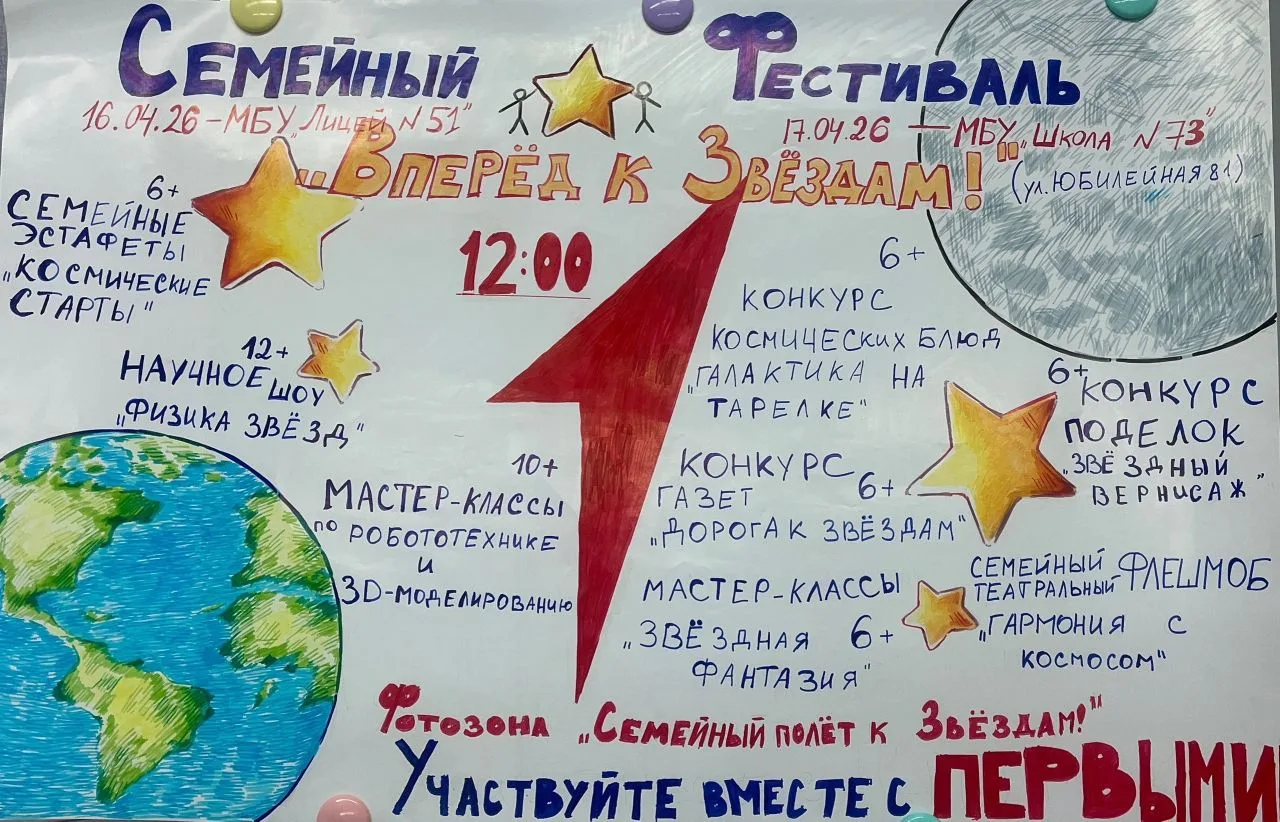 Семейный Фестиваль
16.04.26 – МБУ „Лицей N 51"
17.04.26 — МБУ „Школа N 73"
(ул. Юбилейная 81)
„Вперёд к Звёздам!"
12:00
6+
Семейные
эстафеты
„Космические
старты"
12+
Научное шоу
„Физика звёзд"
10+
Мастер-классы
по робототехнике
и
3D-моделированию
6+
Конкурс
космических блюд
„Галактика на
тарелке"
6+
Конкурс
поделок
„Звёздный
вернисаж"
Конкурс
газет 6+
„Дорога к звёздам"
Мастер-классы
„Звёздная 6+
фантазия"
Семейный
театральный флешмоб
„Гармония с
космосом"
Фотозона „Семейный полёт к Звёздам!"
Участвуйте вместе с ПЕРВЫМИ